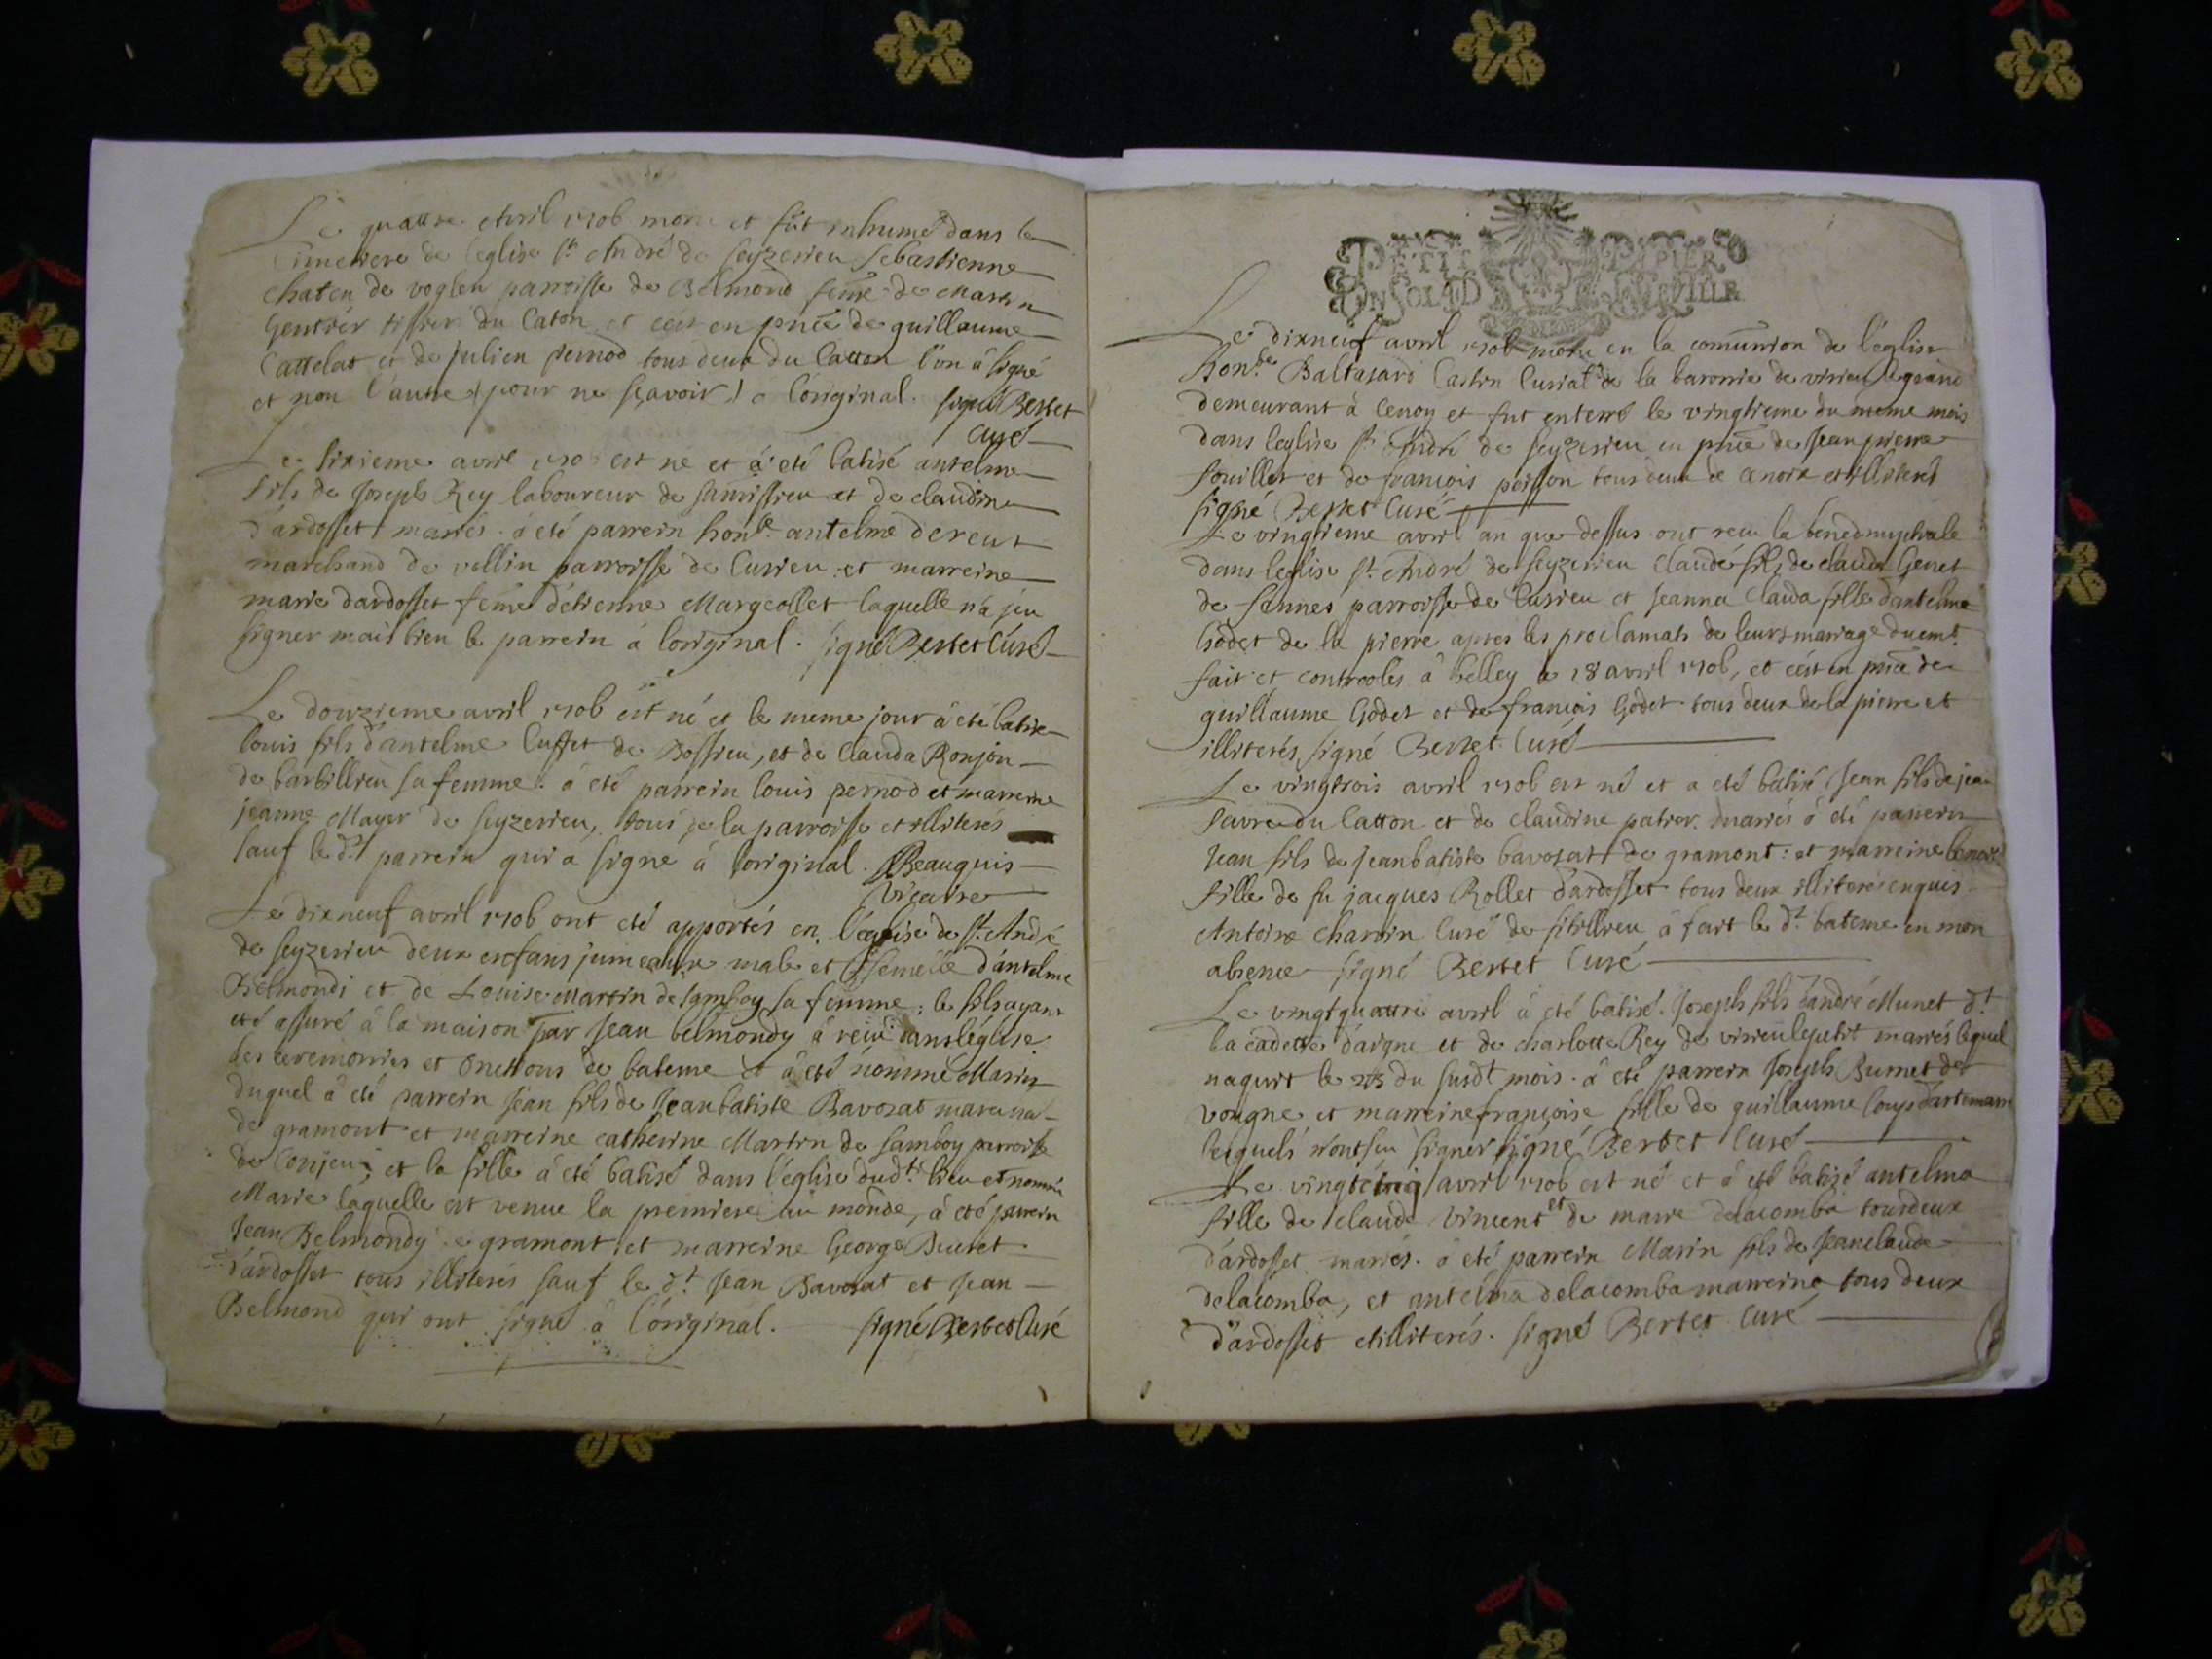 Le quattre Avril 1706 mouru et fut inhumé dans le
cimetiere de leglise st André de seyzerieu Sebastienne
chaten de voglen parroisse de Belmond feme de Martin
Gentier tissier du Caton et cecit en pnce de guillaume
Cattelat et de Julien pernod tous deux du Catton l'on â signé
et non l'autre (pour ne sçavoir) a l'original. signé Bertet
Curé
Le sixieme avril 170 est né et â eté batisé antelme
fils de Joseph Rey laboureur de samissieu et de claudine
d'ardosset mariés. a eté parrein honle antelme dereut
marchand de vollin parroisse de Cusieu et marreine
marie dardosset feme d'etienne Margeollet laquelle n'a sçeu
signer mais bien le parrein á loriginal. signé Bertet Curé
Le douzieme avril 1706 est né et le meme jour â eté batisé
louis fils d'antelme Cuffet de Bossieu, et de Clauda Ronjon
de barbillieu sa femme. â eté parrein louis pernod et marreine
jeanne Mayer de seyzerieu, tous de la parroisse et illiterés
sauf le dt parrein qui a signé à l'original. Beauquis
Vicaire
Le dixneuf avril 1706 ont eté apportés en l'eglise de st André
de seyzerieu deux enfans jumeaux male et femelle d'antelme
Belmondi et de Louise Martin de samboy sa femme; le fils ayant
eté assuré â la maison par Jean belmondy â reçu dans leglise
les ceremonies et onctions de bateme et â eté nommé Marin
duquel â eté parrein Jean fils de Jeanbatiste Bavozat
de gramont et marreine catherine Martin de samboy parroisse
de Conjeu; et la fille â eté batisé dans l'eglise dudt lieu et nommé
Marie laquelle est venue la premiere au monde, â eté parrein
Jean Belmondy de gramont et marreine George Bunet
d'ardosset tous illiterés sauf le dt Jean Bavozat et Jean
Belmond qui ont signé â l'original. signé Bertet Curé
PETIT PAPIER
UN SOL 4 D LA FEUILLE
Le dixneuf avril 1706 mouru en la comunion de l'église
Honble Baltazard Castin Curial de la baronie de virieu le grand
demeurant à Cenoy et fut enterré le vingtieme du meme mois
dans leglise st André de seyzerieu en pnce de Jean pierre
souillet et de francois poisson tous deux de Cenoix et illiterés
signé Bertet Curé
Le vingtieme avril an que dessus ont reçu la bened nuptiale
dans leglise st André de seyzerieu Claude fils de claude Genet
de sennes parroisse de Cusieu et Jeanne Clauda fille d'antelme
Godet de la pierre apres les proclamats de leurs mariage duemt
fait et controolés â belley le 18 avril 1706, et cecit en pnce de
guillaume Godet et de francois Godet tous deux de la pierre et
illiterés, signé Bertet Curé
Le vingtrois avril 1706 est né et a eté batisé Jean fils de jean
favre du Catton et de claudine patier mariés â eté parrein
Jean fils de Jeanbatiste bavozat de gramont: et marreine benoite
fille de fu jacques Rollet d'ardosset tous deux illiterés enquis
Antoine Charvin Curé de sitillieu â fait le dt bateme en mon
absence signé Bertet Curé
Le vingtquattre avril â eté batisé. Joseph fils d'andré Munet dt
la cadette d'aigne et de charlotte Rey de virieulepetit mariés lequel
naquit le 23 du susdt mois. â eté parrein Joseph Burnet de
vongne et marreine françoise fille de guillaume Coup d'artemare
lesquels n'ont sçu signer signé Bertet Curé
Le vingtcinq avril 1706 est né et â eté batisé antelma
fille de Claude Vincent et de marie delacomba tousdeux
d'ardosset mariés. â eté parrein Marin fils de Jeanclaude
delacomba, et antelma delacomba marreine tous deux
d'ardosset et illiterés. signé Bertet Curé